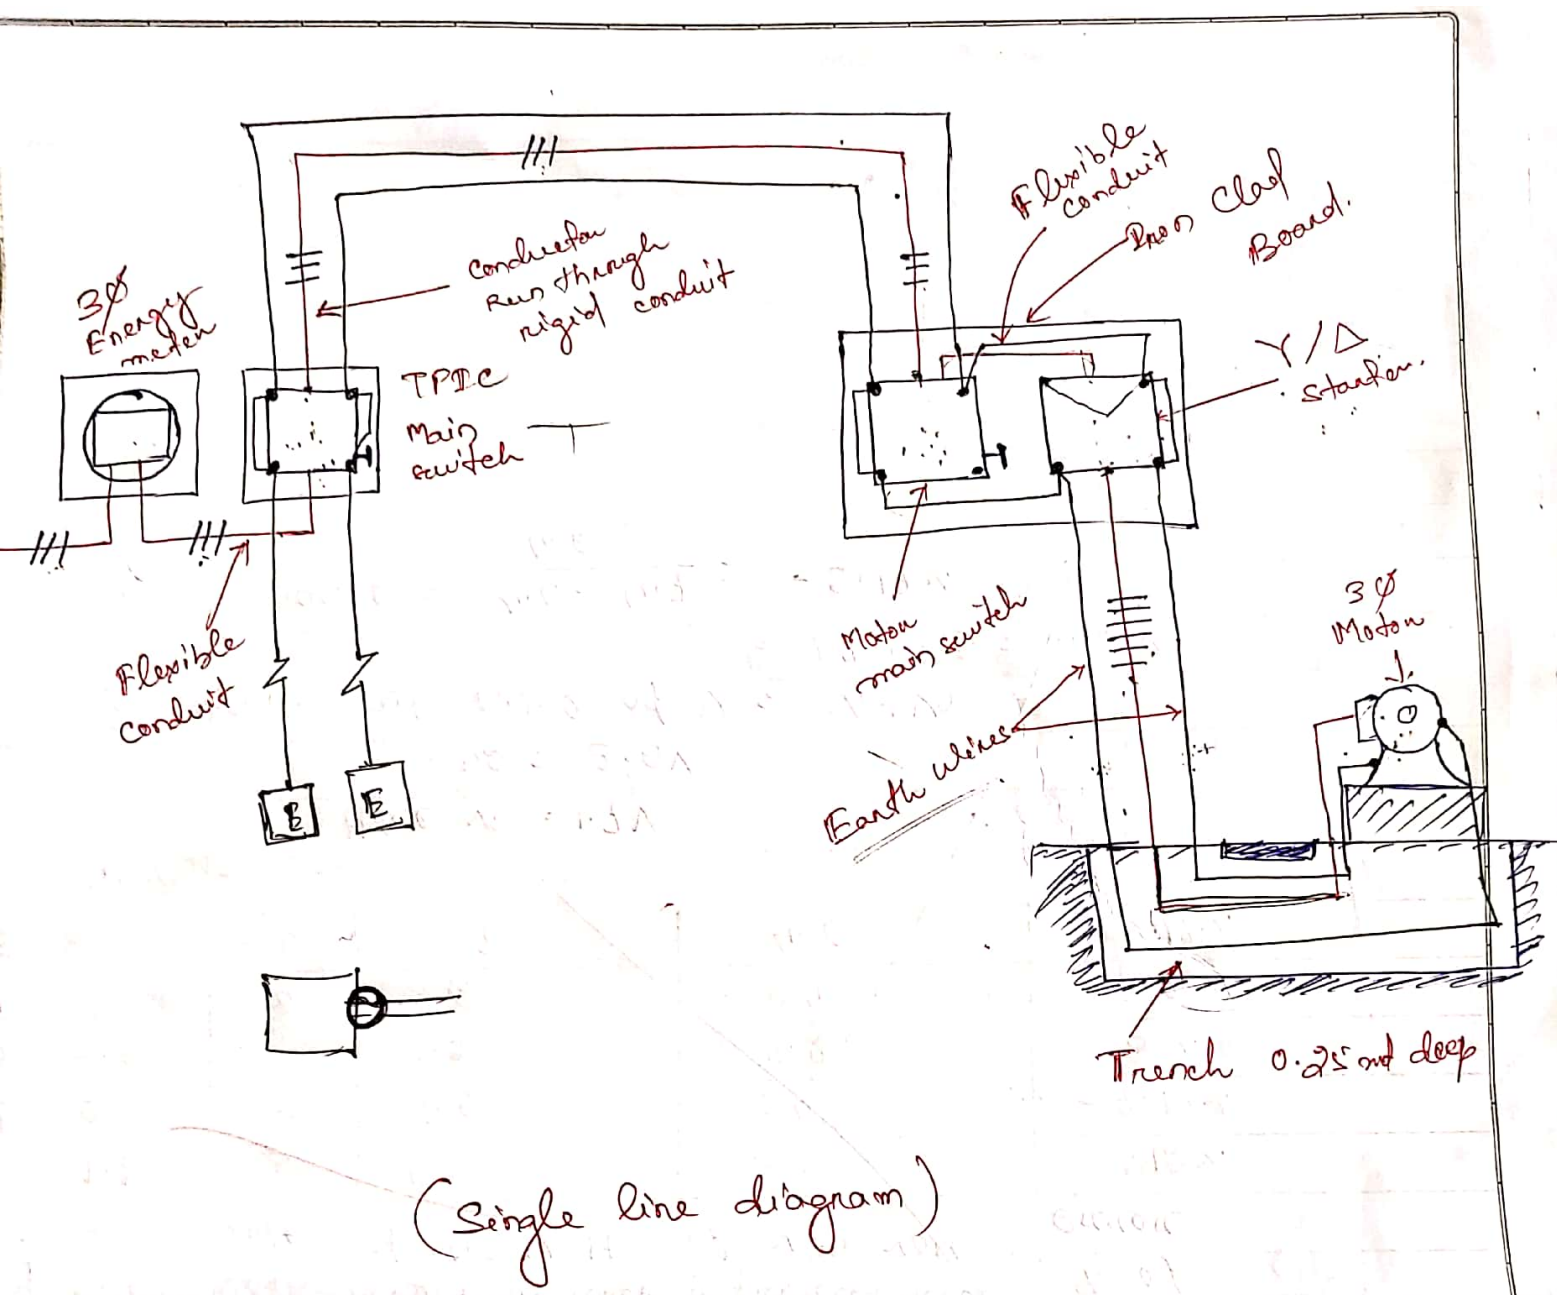 3φ
Energy
meter
Conductor
Run through
rigid conduit
TPIC
Main
switch
Flexible
conduit
Flexible
conduit
Iron Clad
Board.
Y/Δ
starter.
Motor
main switch
Earth wires
3φ
Motor
E
E
Trench 0.25 mt deep
(Single line diagram)